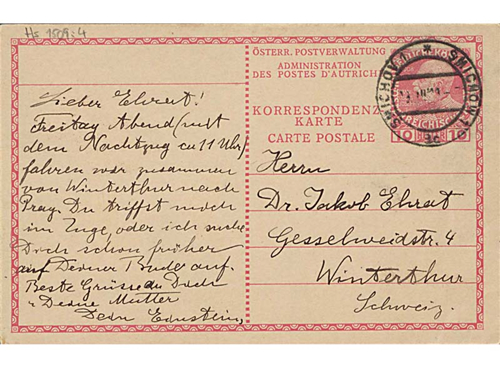 Hs 1509:4
ÖSTERR. POSTVERWALTUNG
ADMINISTRATION
DES POSTES D'AUTRICHE
KORRESPONDENZ-
KARTE
CARTE POSTALE
SMICHOV 1
SMICHOW 1
10 10
Lieber Ehrat!
Freitag Abend (mit
dem Nachtzug ca 11 Uhr)
fahren wir zusammen
von Winterthur nach
Prag. Du triffst mich
im Zuge, oder ich suche
Dich schon früher
auf Deiner Bude auf.
Beste Grüsse an Dich
u Deine Mutter
Dein Einstein
Herrn
Dr. Jakob Ehrat
Gesselweidstr. 4
Winterthur
Schweiz.